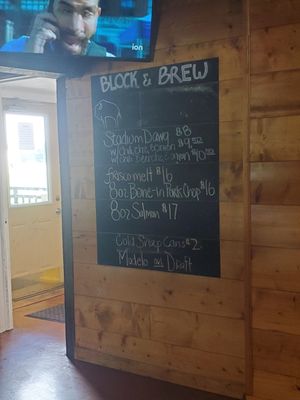 ion
BLOCK & BREW
Stadium Dawg $8
w/ Chili, chz, & onion $9.50
w/ chz & onion $10.50
Frisco melt $16
8oz Bone-in Pork Chop $16
8oz Salmon $17
Cold Snap Cans $2
Modelo on Draft